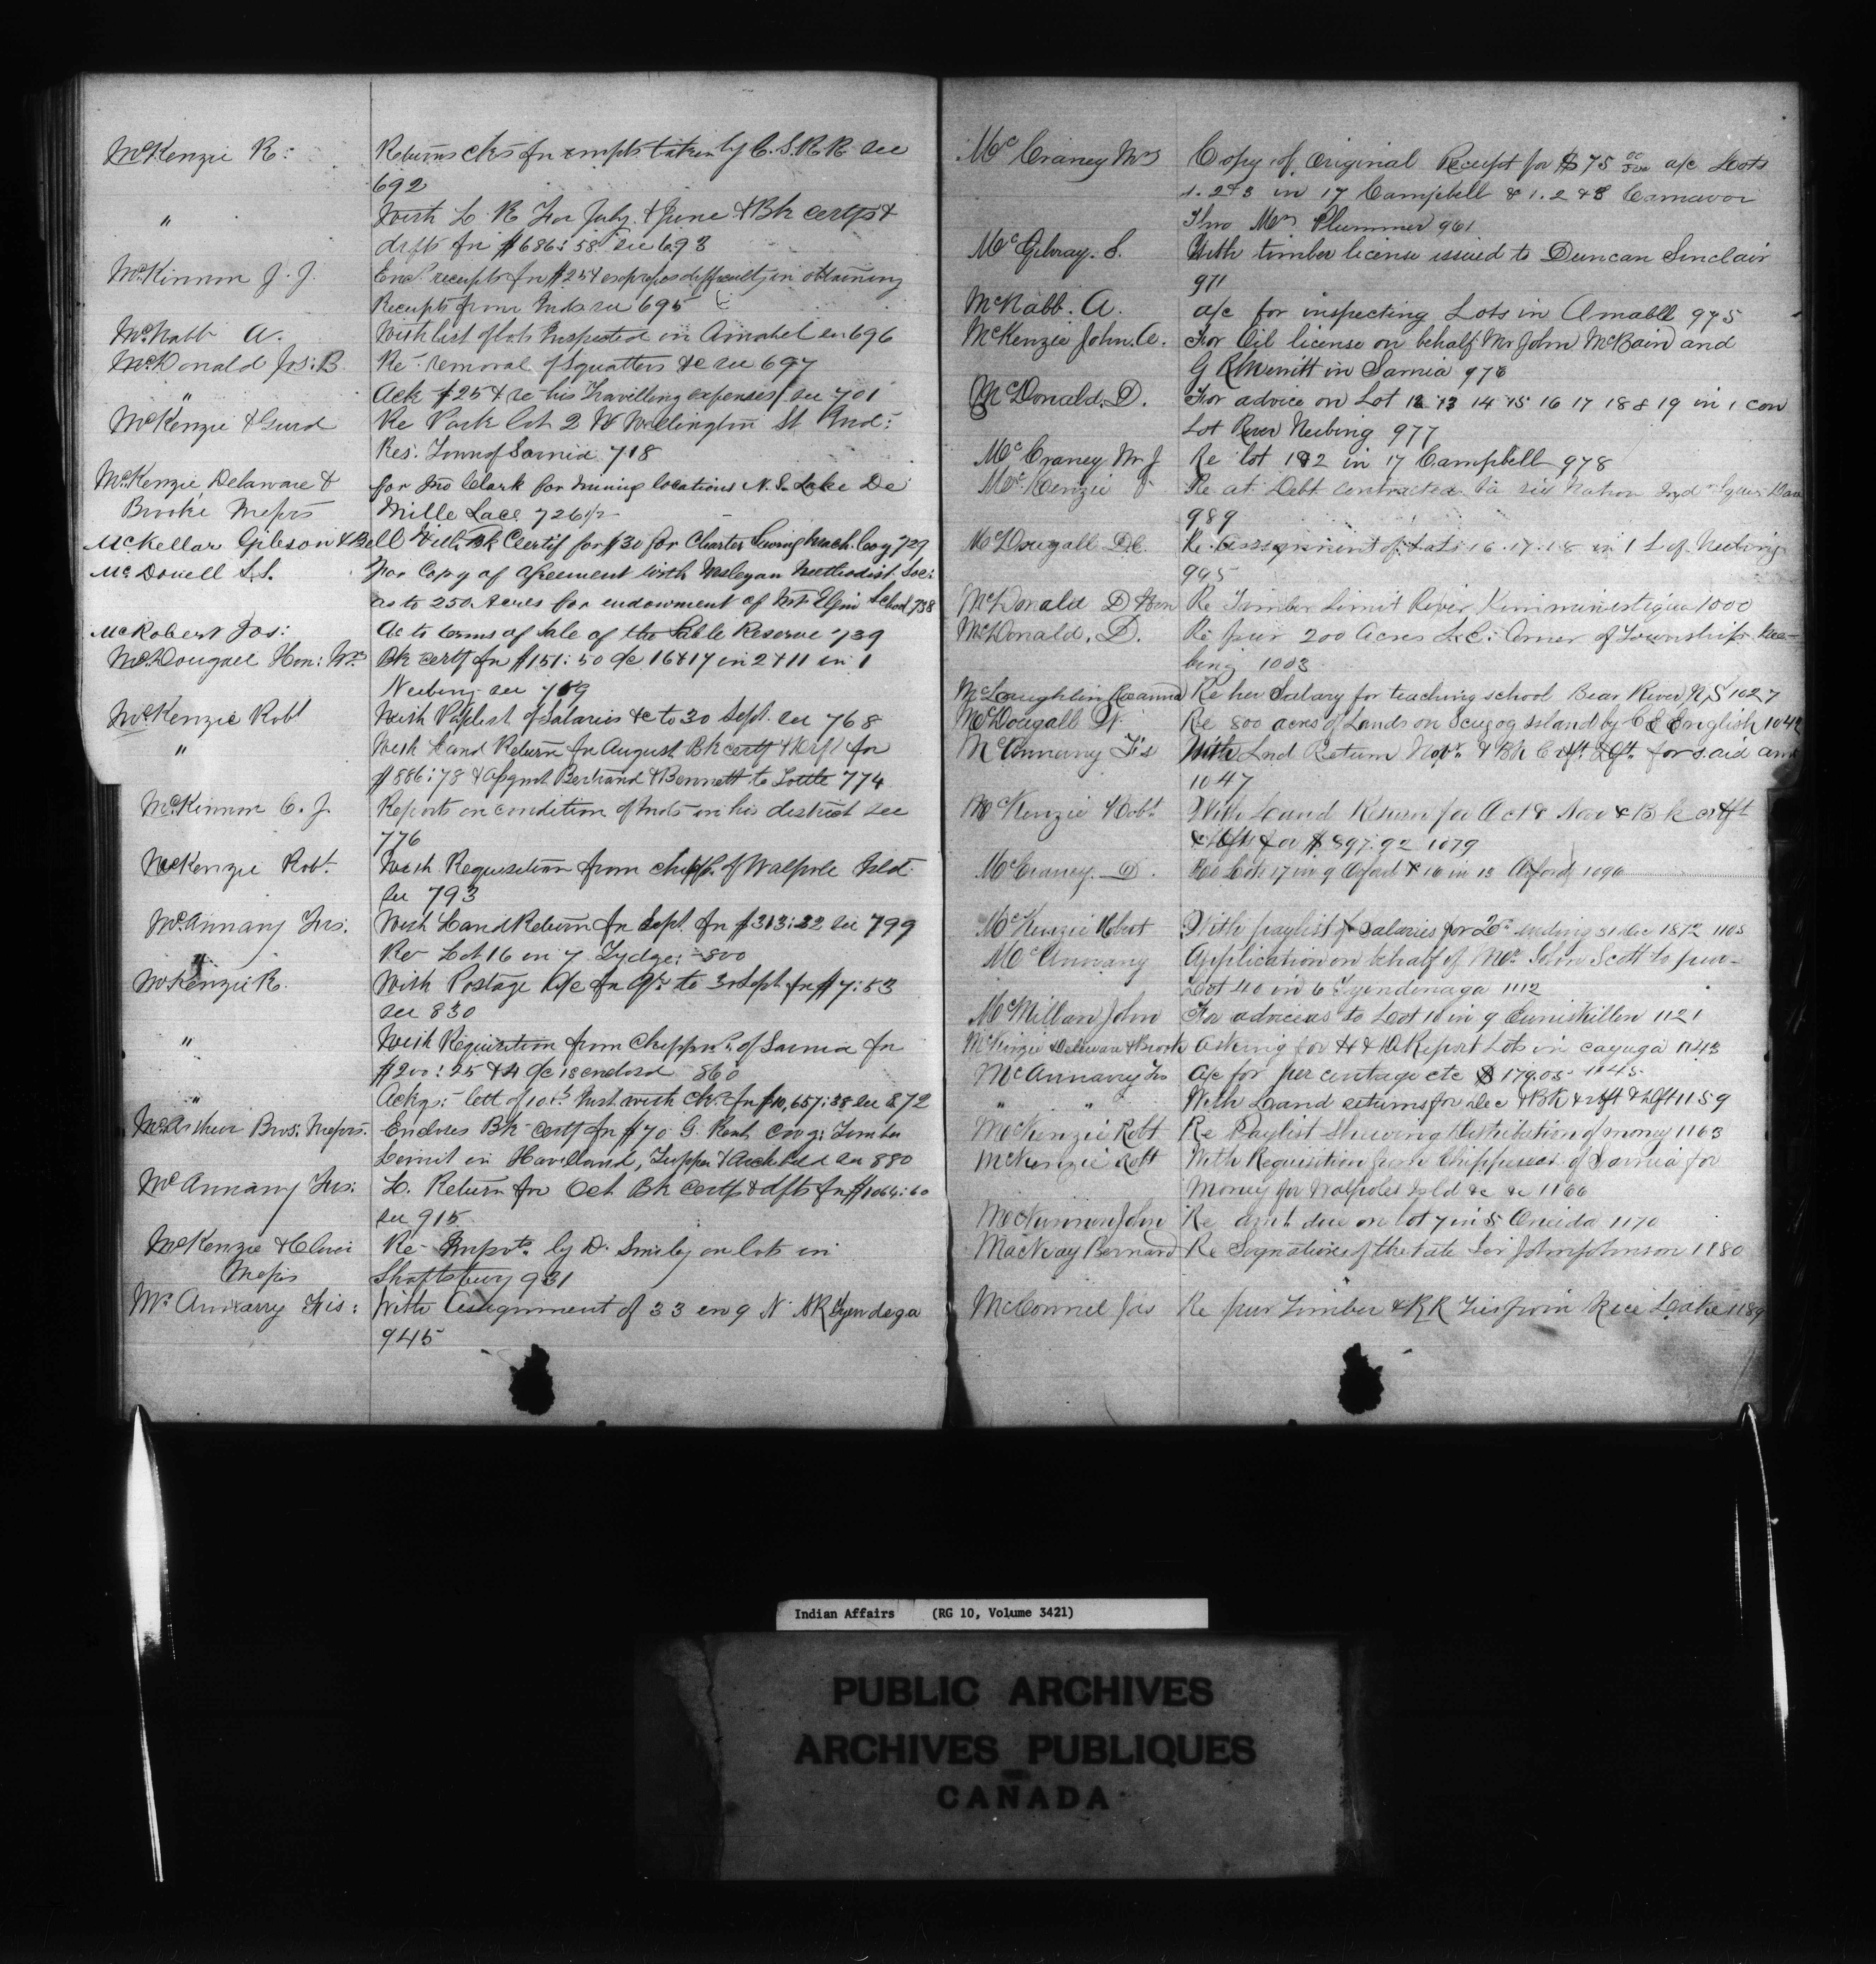 McKenzie R: Returns cks fr empts taken by C.S.R.R. see
692
" With L. R. For July & June & Bk certfs &
dfts fr $686:58 see 693
McKinnon J. J. Encl receipts fr $254 expresses difficulty in obtaining
Receipts from Inds see 695
McNabb A. With list of lots Inspected in Amabel see 696
McDonald Jos: B. Re removal of Squatters &c see 697
" Ack $25 & re his Travelling expenses see 701
McKenzie & Gurd Re Park lot 2 W Wellington St Ind:
Res: Town of Sarnia 718
McKenzie Delaware & for Jno Clark for mining locations N. S. Lake De
Brooke Messrs Mille Lacs 726 1/2
McKellar Gibson & Bell With Bk Certif for $30 for Charter Sewing Mach. Coy 729
McDonell S.S. For Copy of Agreement with Wesleyan Methodist Soc:
as to 250 Acres for endowment of Mt Elgin School 738
McRobert Jos: As to terms of Sale of the Sable Reserve 739
McDougall Hon: Wm Bk certf fr $151:50 %c 16 & 17 in 2 & 11 in 1
Neebing see 769
McKenzie Robt With Paylist of Salaries &c to 30 Sept. see 768
" With Land Return fr August Bk certf & Dft for
$886:78 & Assgnmt Bertrand & Bennett to 774
McKinnon C. J. Reports on condition of Inds in his district see
776
McKenzie Robt. With Requisition from Chipps. of Walpole Isld.
see 793
McAnnany Frs: With Land Return fr Sept. fr $313:32 see 799
" Re Lot 16 in 7 Tydge: 800
McKenzie R. With Postage %c fr Qr to 30 Sept. fr $7:53
see 830
" With Requisition from Chippws. of Sarnia fr
$200:25 & 4 %c is enclosd 860
" Ackgs: lett of 10th Inst with ck fr $10,657:38 see 872
McArthur Bros: Messrs. Encloses Bk certf fr $70 G. Rent cov'g: Timber
Limit in Haviland, Tupper & Archibald see 880
McAnnany Frs: L. Return fr Oct Bk certfs & dfts fr $1064:60
see 915
McKenzie & Re Impvts. by D. Smiley on lots in
Messrs Shaftsbury 931
McAnnany Fris: With Assignment of 33 in 9 N. SR Tyendega
945
McCraney Wm Copy of Original Receipt for $75 00/100 a/c Lots
1. 2 & 3 in 17 Campbell & 1. 2 & 3 Carnavon
Thro Mr. Plummer 961
McGilvray. S. With timber license issued to Duncan Sinclair
971
McNabb. A. a/c for inspecting Lots in Amabll 975
McKenzie John. A. For Oil license on behalf Mr John McBain and
G R Merritt in Sarnia 976
McDonald. D. For advice on Lot 12 13 14 15 16 17 18 & 19 in 1 con
Lot River Neebing 977
McCraney Wm J Re lot 1 & 2 in 17 Campbell 978
McKenzie Re at Debt contracted six Nation
989
McDougall Re Assignment of Lots 16. 17. 18 in 1 L. of Neebing
995
McDonald D Hon Re Timber Limit River Kiministiqua 1000
McDonald. D. Re pur 200 Acres S.E. Corner of Township Nee-
bing 1003
McLoughlin Re her Salary for teaching school Bear River N/S 1027
McDougall W. Re 800 acres of Lands on Scugog Island by C E English 1042
McAnnany Fis With Lnd Return Nov. & Bk Crft. Dft. for said amt
1047
McKenzie Robt With Land Return for Oct & Nov & Bk crtft
& dfts for $897.92 1079
McCraney. D. Re Lots 17 in 9 Oxford & 16 in 13 Oxford 1090
McKenzie Robert With paylist of Salaries for Qr ending 31 Dec 1872 1105
McAnnany Application on behalf of Mr. John Scott to pur-
Lot 40 in 6 Tyendenaga 1112
McMillan John For advice as to Lot 10 in 9 Euniskillen 1121
McKenzie Delaware & Brook Asking for H & D Report Lots in Cayuga 1143
McAnnany Frs a/c for per centage etc $179.05 1145
" " With Land returns for Dec & Bk crtft & dft 1159
McKenzie Robt Re Paylist Shewing distribution of money 1163
McKenzie Robt With Requisition from Chippewas of Sarnia for
Money for Walpole Isld &c &c 1166
McKinnon John Re amt due on lot 7 in 5 Oneida 1170
MacKay Bernard Re Signature of the late Sir John Johnson 1180
McConnel Jas Re pur Timber & RR Ties from Rice Lake 1189
Indian Affairs (RG 10, Volume 3421)
PUBLIC ARCHIVES
ARCHIVES PUBLIQUES
CANADA